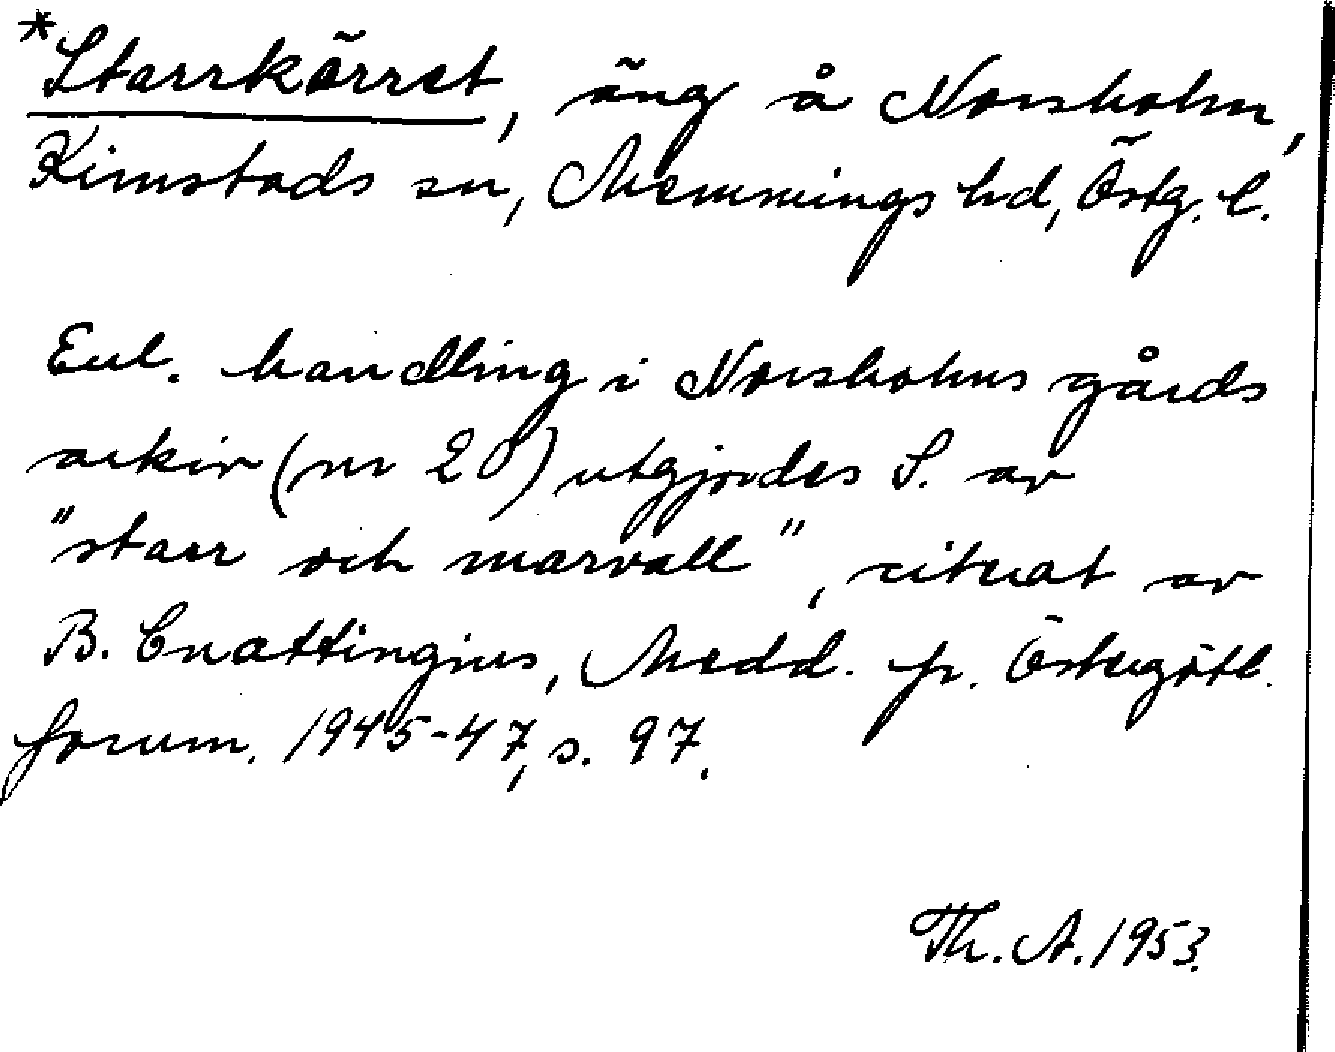 *Starrkärret, äng å Norsholm,
Kimstads sn, Memmings hd, Östg. l.
Enl. handling i Norsholms gårds
arkiv (nr 20) utgjordes S. av
"starr och marvall", citerat av
B. Cnattingius, Medd. fr. Östergötl.
fornm. 1945-47, s. 97.
Th. A. 1953.